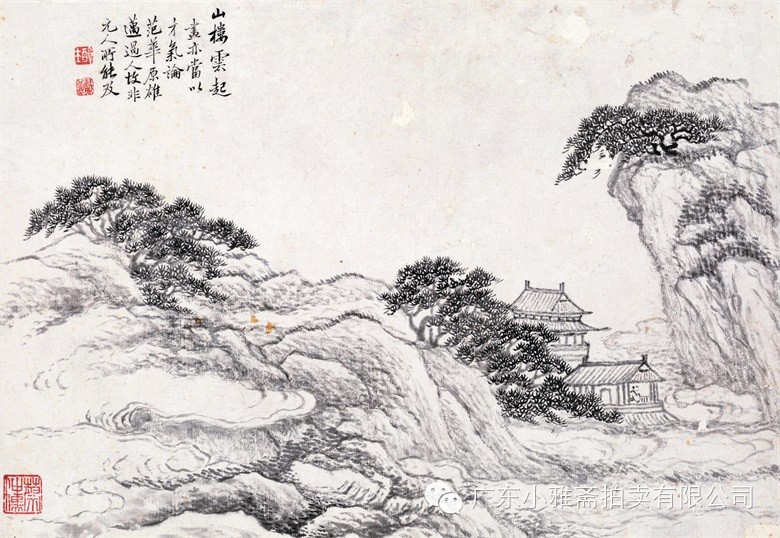 山樓雲起
畫亦當以
才氣論
范華原雄
邁過人故非
元人所能及
广东小雅斋拍卖有限公司